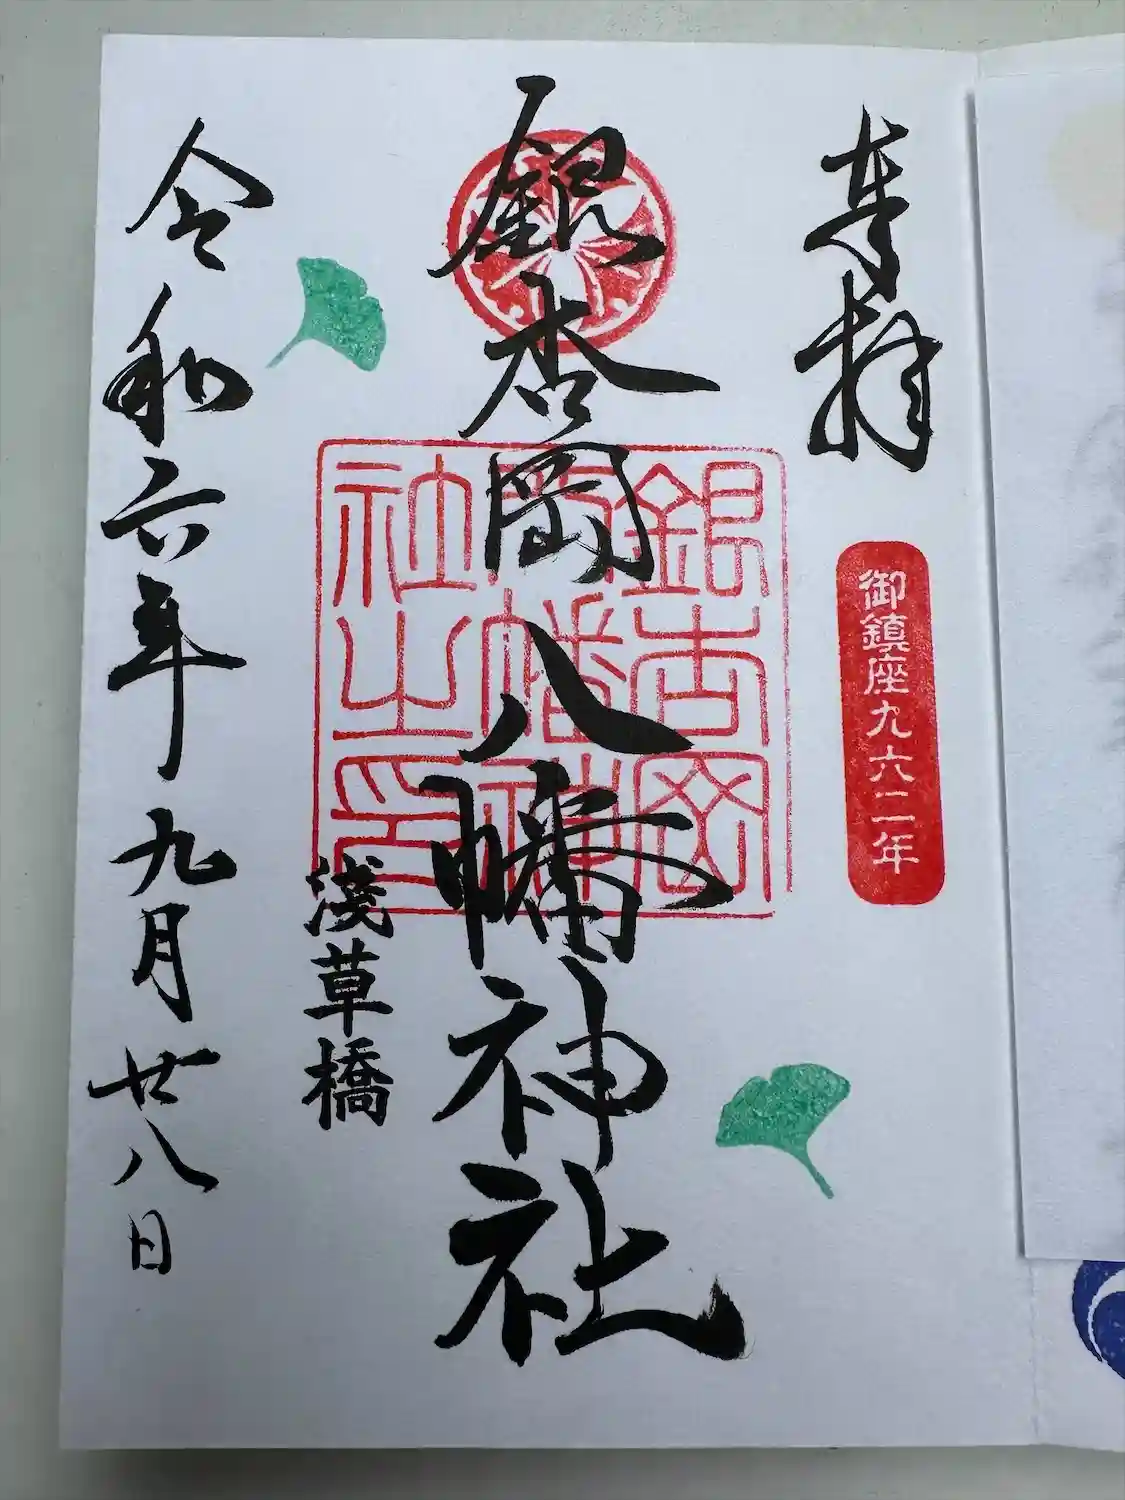 奉拝
御鎮座九六二年
銀杏岡八幡神社
銀杏岡
八幡神
社之印
浅草橋
令和六年九月廿八日